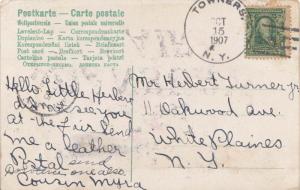 Postkarte – Carte postale
Weltpostverein – Union postale universelle
Levelező-Lap – Correspondenzkarte
Dopisnice – Karta korespondencyjna
Korespondenční lístek – Briefkaart
Post card – Brefkort – Brevkort
Cartolina postale – Tarjeta postal
TOWNERS
OCT
15
1907
N. Y.
Hello Little Herbert
did not see you
at the Fair Send
me a leather
Postal send
one also
Cousin Myra
Mr Herbert Turner Jr
11 Oakwood ave
White Plaines
N. Y.